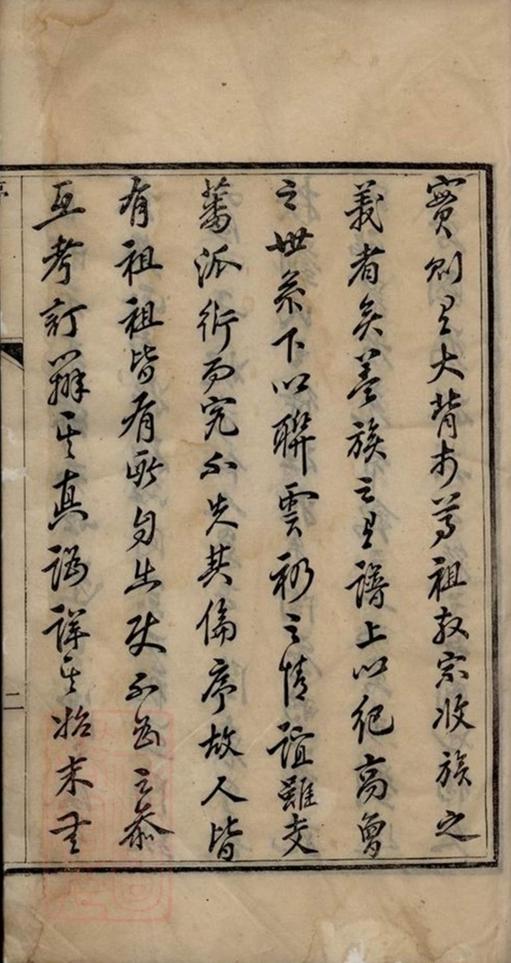 實則有大背于尊祖敬宗收族之
義者矣蓋族之有譜上以紀高曾
之世系下以聯雲礽之情誼雖支
蕃派衍而究不失其倫序故人皆
有祖祖皆有所自出使不為之叅
互考訂辨其真譌詳其始末無
二